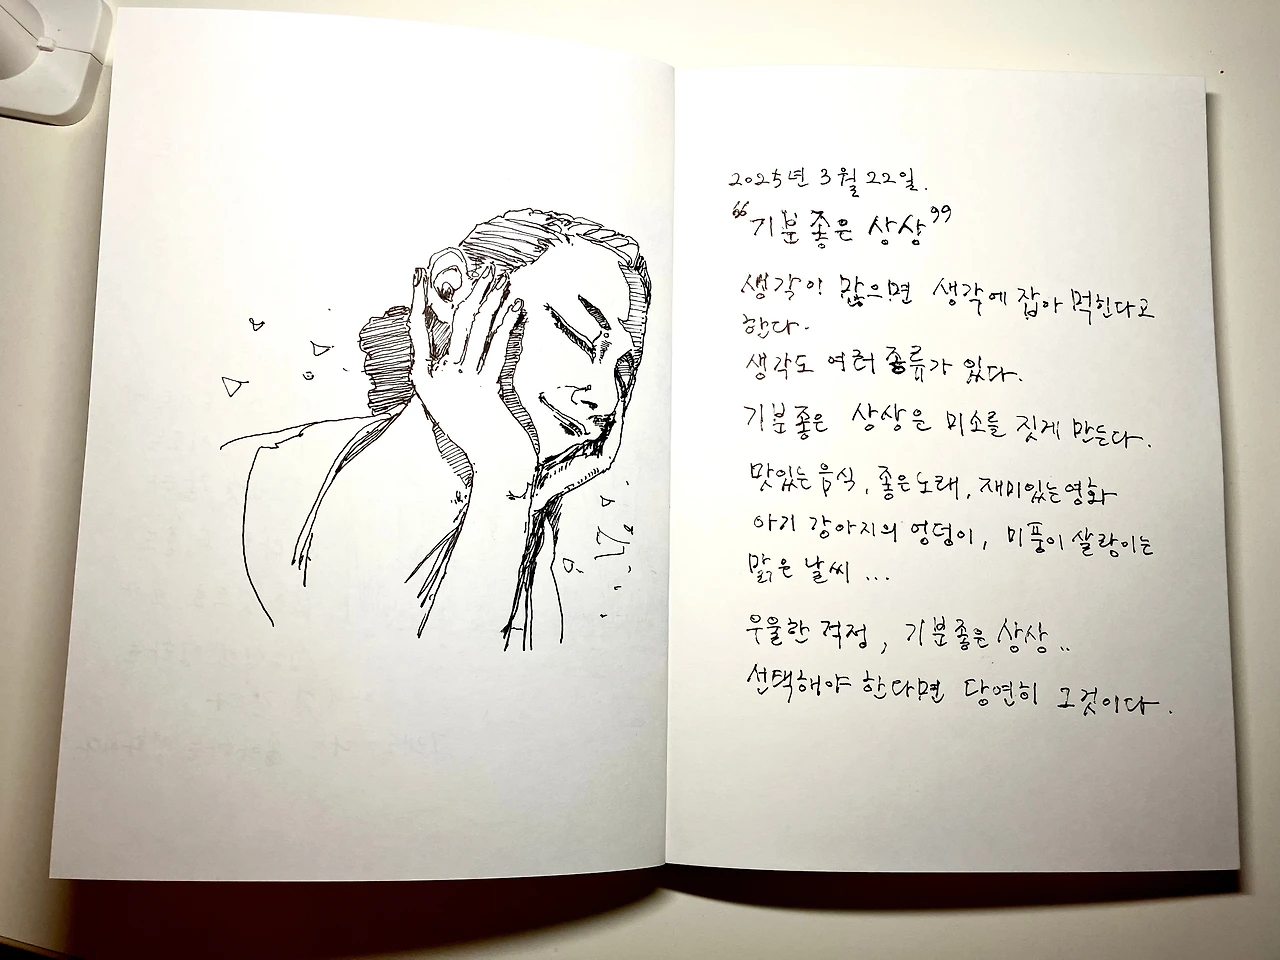 2025년 3월 22일.
"기분 좋은 상상"
생각이 많으면 생각에 잡아 먹힌다고
한다.
생각도 여러 종류가 있다.
기분좋은 상상은 미소를 짓게 만든다.
맛있는 음식, 좋은 노래, 재미있는 영화
아기 강아지의 엉덩이, 미풍이 살랑이는
맑은 날씨 ...
우울한 걱정, 기분좋은 상상..
선택해야 한다면 당연히 그것이다.